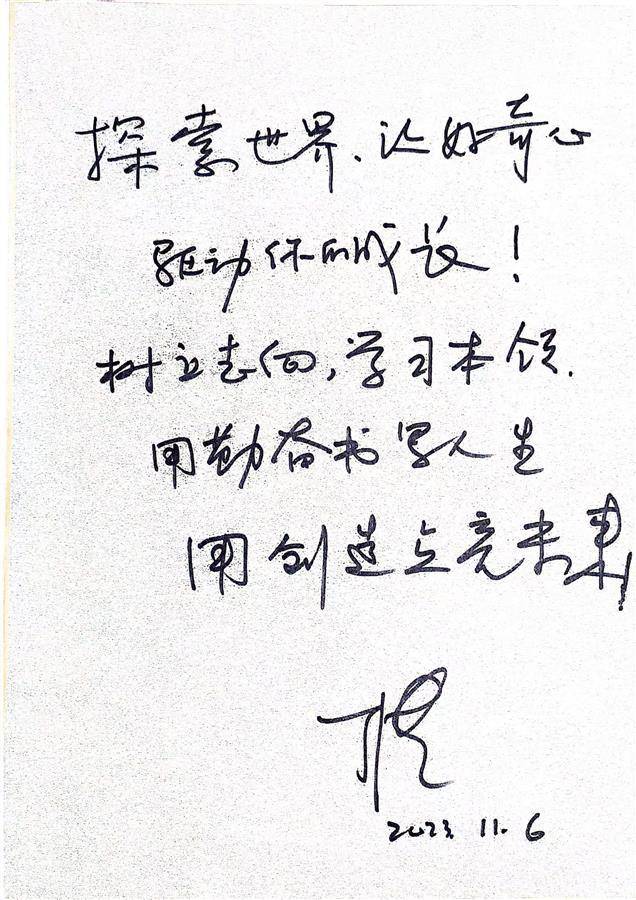 探索世界、让好奇心
驱动你的成长！
树立志向，学习本领.
用勤奋书写人生
用创造点亮未来
2023. 11. 6